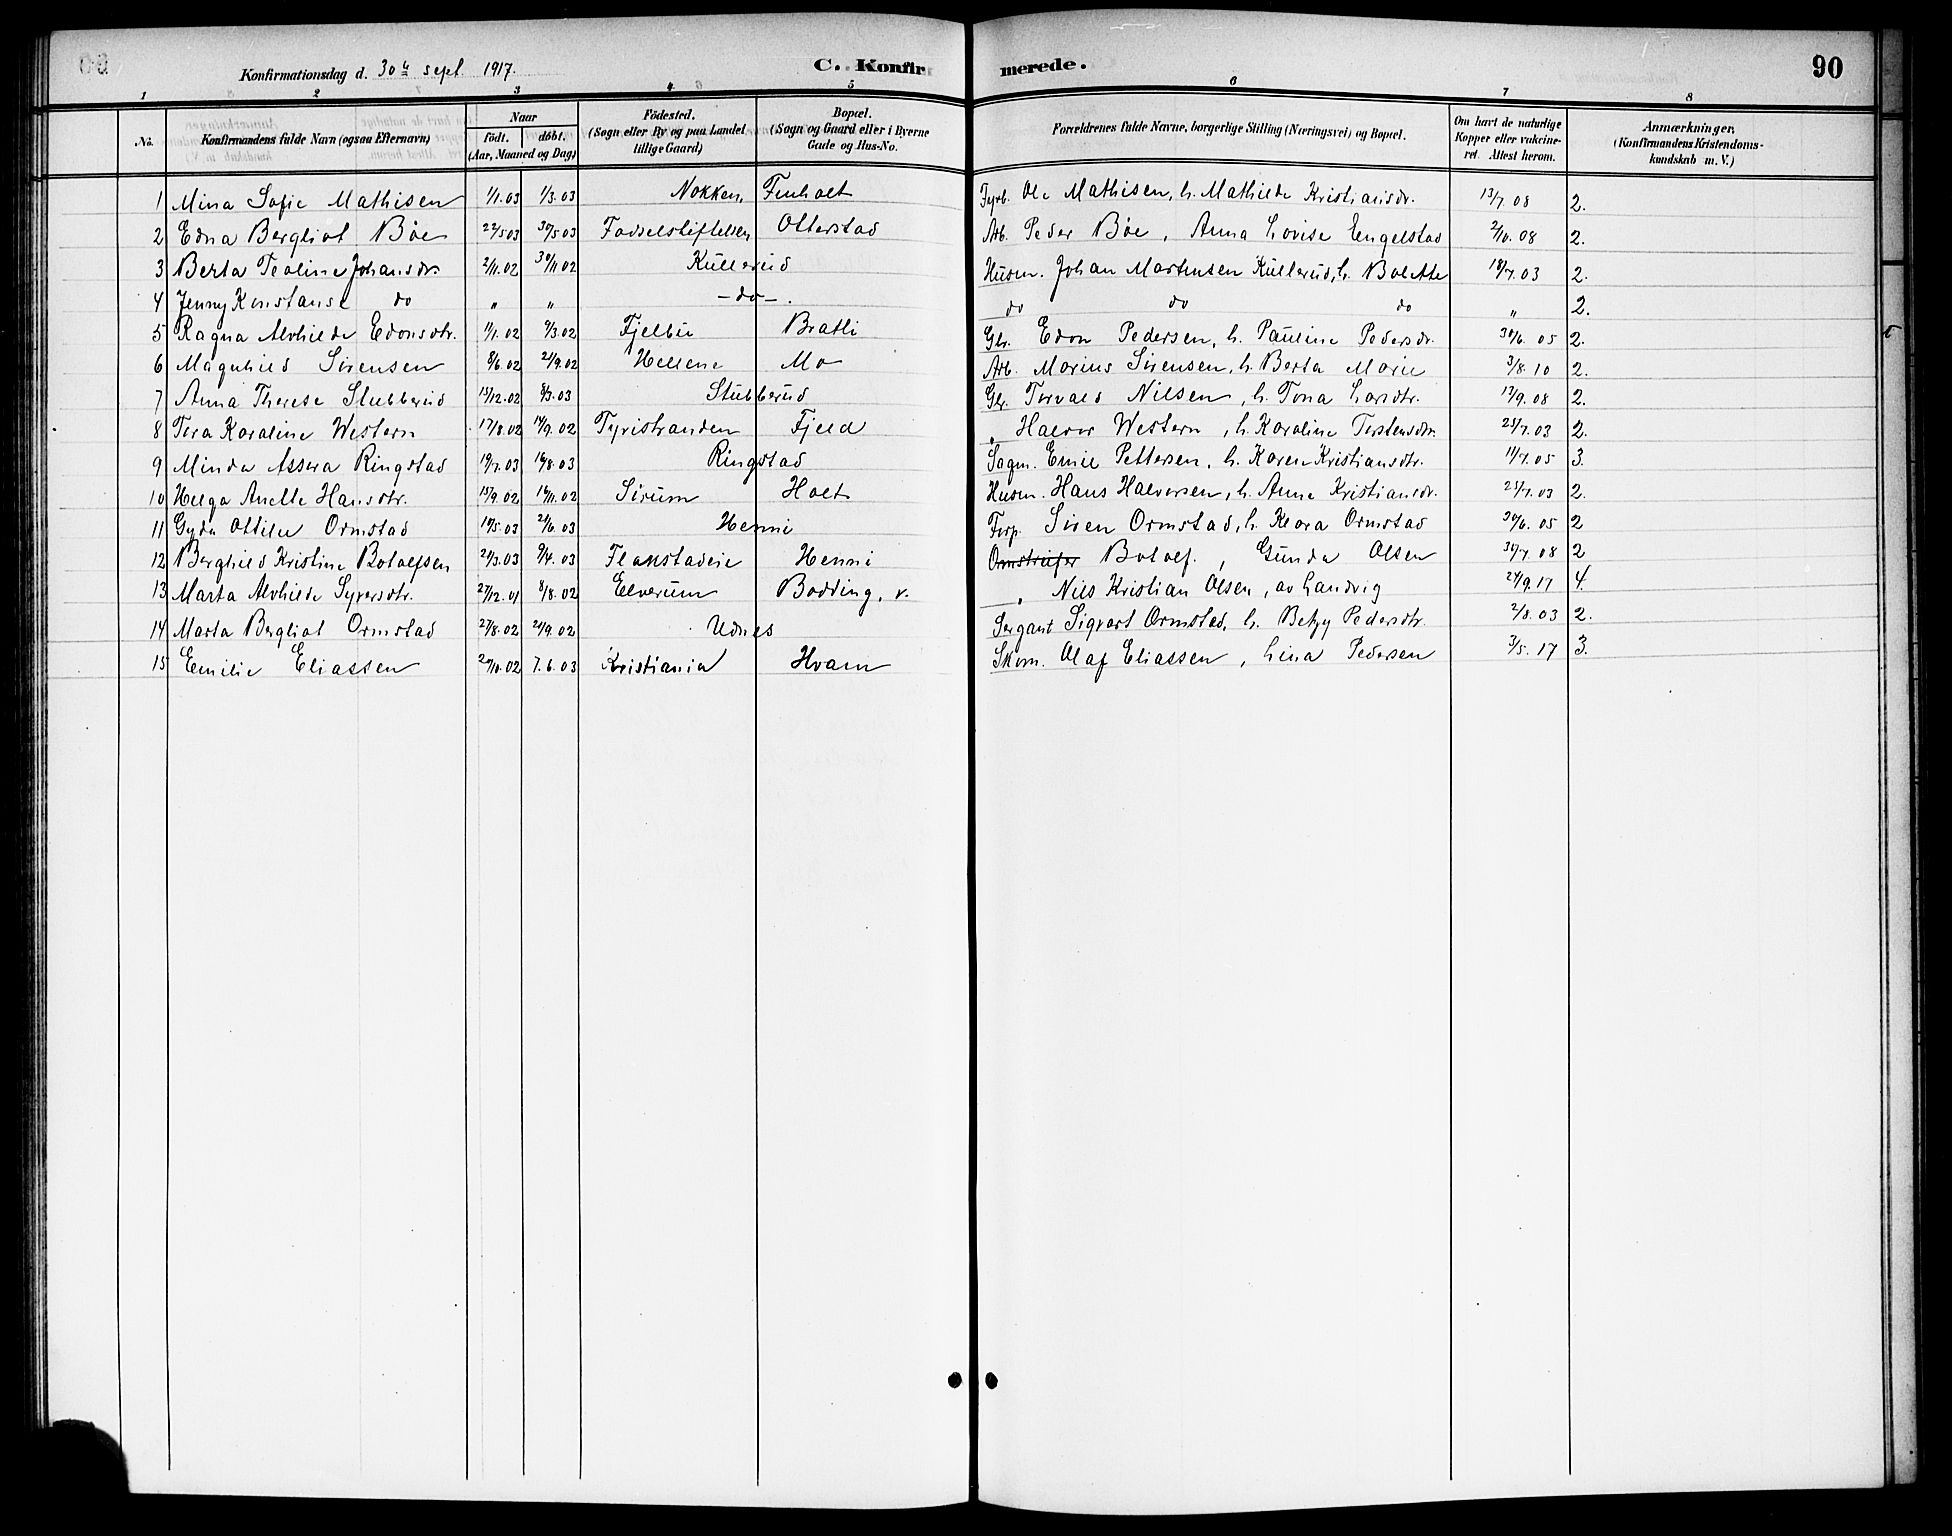 Konfirmationsdag d. 30te sept. 1917.
C. Konfirmerede.
90
1 2 3 4 5 6 7 8
No.
Konfirmandens fulde Navn (ogsaa Efternavn)
Naar
födt. döbt.
(Aar, Maaned og Dag)
Födested.
(Sogn eller By og paa Landet
tillige Gaard)
Bopæl.
(Sogn og Gaard eller i Byerne
Gade og Hus-No.
Forældrenes fulde Navne, borgerlige Stilling (Næringsvei) og Bopæl.
Om havt de naturlige
Kopper eller vakcine-
ret. Attest herom.
Anmærkninger,
(Konfirmandens Kristendoms-
kundskab m. V.)
1 Mina Sofie Mathisen 1/1.03 1/3.03 Nokken, Finholt Fyrb. Ole Mathisen, h. Mathilde Kristiansdr. 13/7 08 2.
2 Edna Bergliot Böe 22/5 03 30/5 03 Födselstiftelsen Otterstad Arb. Peder Böe, Anna Lovise Engelstad 2/10. 08 2.
3 Berta Teoline Johansdr. 2/11.02 30/11 02 Kullerud Husm. Johan Martinsen Kullerud, h. Bolette 18/7. 03 2.
4 Jenny Konstanse do " " -do-. do do do " 2.
5 Ragna Alvhilde Edonsdtr. 1/1.02 9/3.02 Fjelbu Bratli Gbr. Edon Pedersen, h. Pauline Pedersdr. 30/6. 05 2.
6 Magnhild Sörensen 8/6.02 21/9.02 Hellene Mo Arb. Marius Sörensen, h. Berta Marie 3/8. 10 2.
7 Anna Therese Stubberud 15/12.02 8/3.03 Stubberud Gbr. Torvald Nilsen, h. Tona Larsdtr. 17/9. 08 2.
8 Tora Karoline Western 17/8.02 14/9.02 Tyristranden Fjeld " Halvor Western, h. Karoline Torstensdtr. 25/7. 03 2.
9 Minda Assera Ringstad 19/7.03 16/8.03 Ringstad Sagm. Emil Pettersen, h. Karen Kristiansdtr. 11/7. 05 3.
10 Helga Anette Hansdtr. 15/9.02 16/11.02 Sörum Holt Husm. Hans Halvorsen, h. Anne Kristiansdr. 25/7. 03 2.
11 Gyda Ottilie Ormstad 19/5.03 21/6.03 Henni Forp. Sören Ormstad, h. Klara Ormstad 30/6. 05 2
12 Berghild Kristine Botolfsen 24/3.03 9/4.03 Flakstadeie Henni Omstreifer Botolf. , Gunda Olsen 31/7. 08 2
13 Marta Alvhilde Syversdtr. 27/12.01 8/8.02 Elverum Bodding, v. " Nils Kristian Olsen, av Landvig 24/9.17 4.
14 Marta Bergliot Ormstad 27/8.02 21/9.02 Udnes Sergant Sigvart Ormstad, h. Betzy Pedersdtr. 2/8. 03 2.
15 Emilie Eliassen 24/10.02 7.6.03 Kristiania Hvam Skom. Olaf Eliassen, Lina Pedersen 3/5. 17 3.